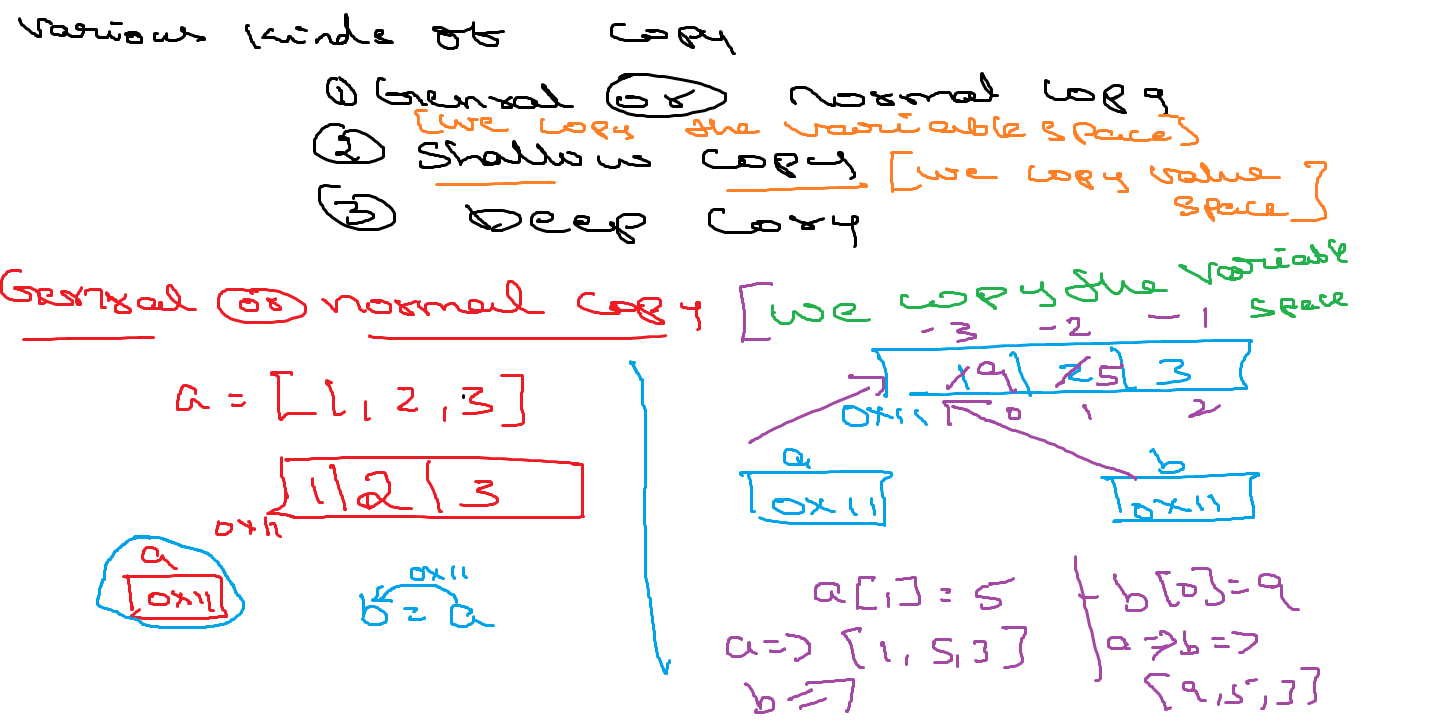 Various kinds of copy
① General or normal copy
[we copy the variable space]
② Shallow copy [we copy value space]
③ Deep Copy
General or normal copy [we copy the variable space
-3 -2 -1
1 9 2 5 3
0x11 0 1 2
a = [1, 2, 3]
a b
0x11 0x11
1 2 3
0x11
a
0x11
0x11
b = a
a[1] = 5 b[0] = 9
a => [1, 5, 3] a => b =>
b => [9, 5, 3]